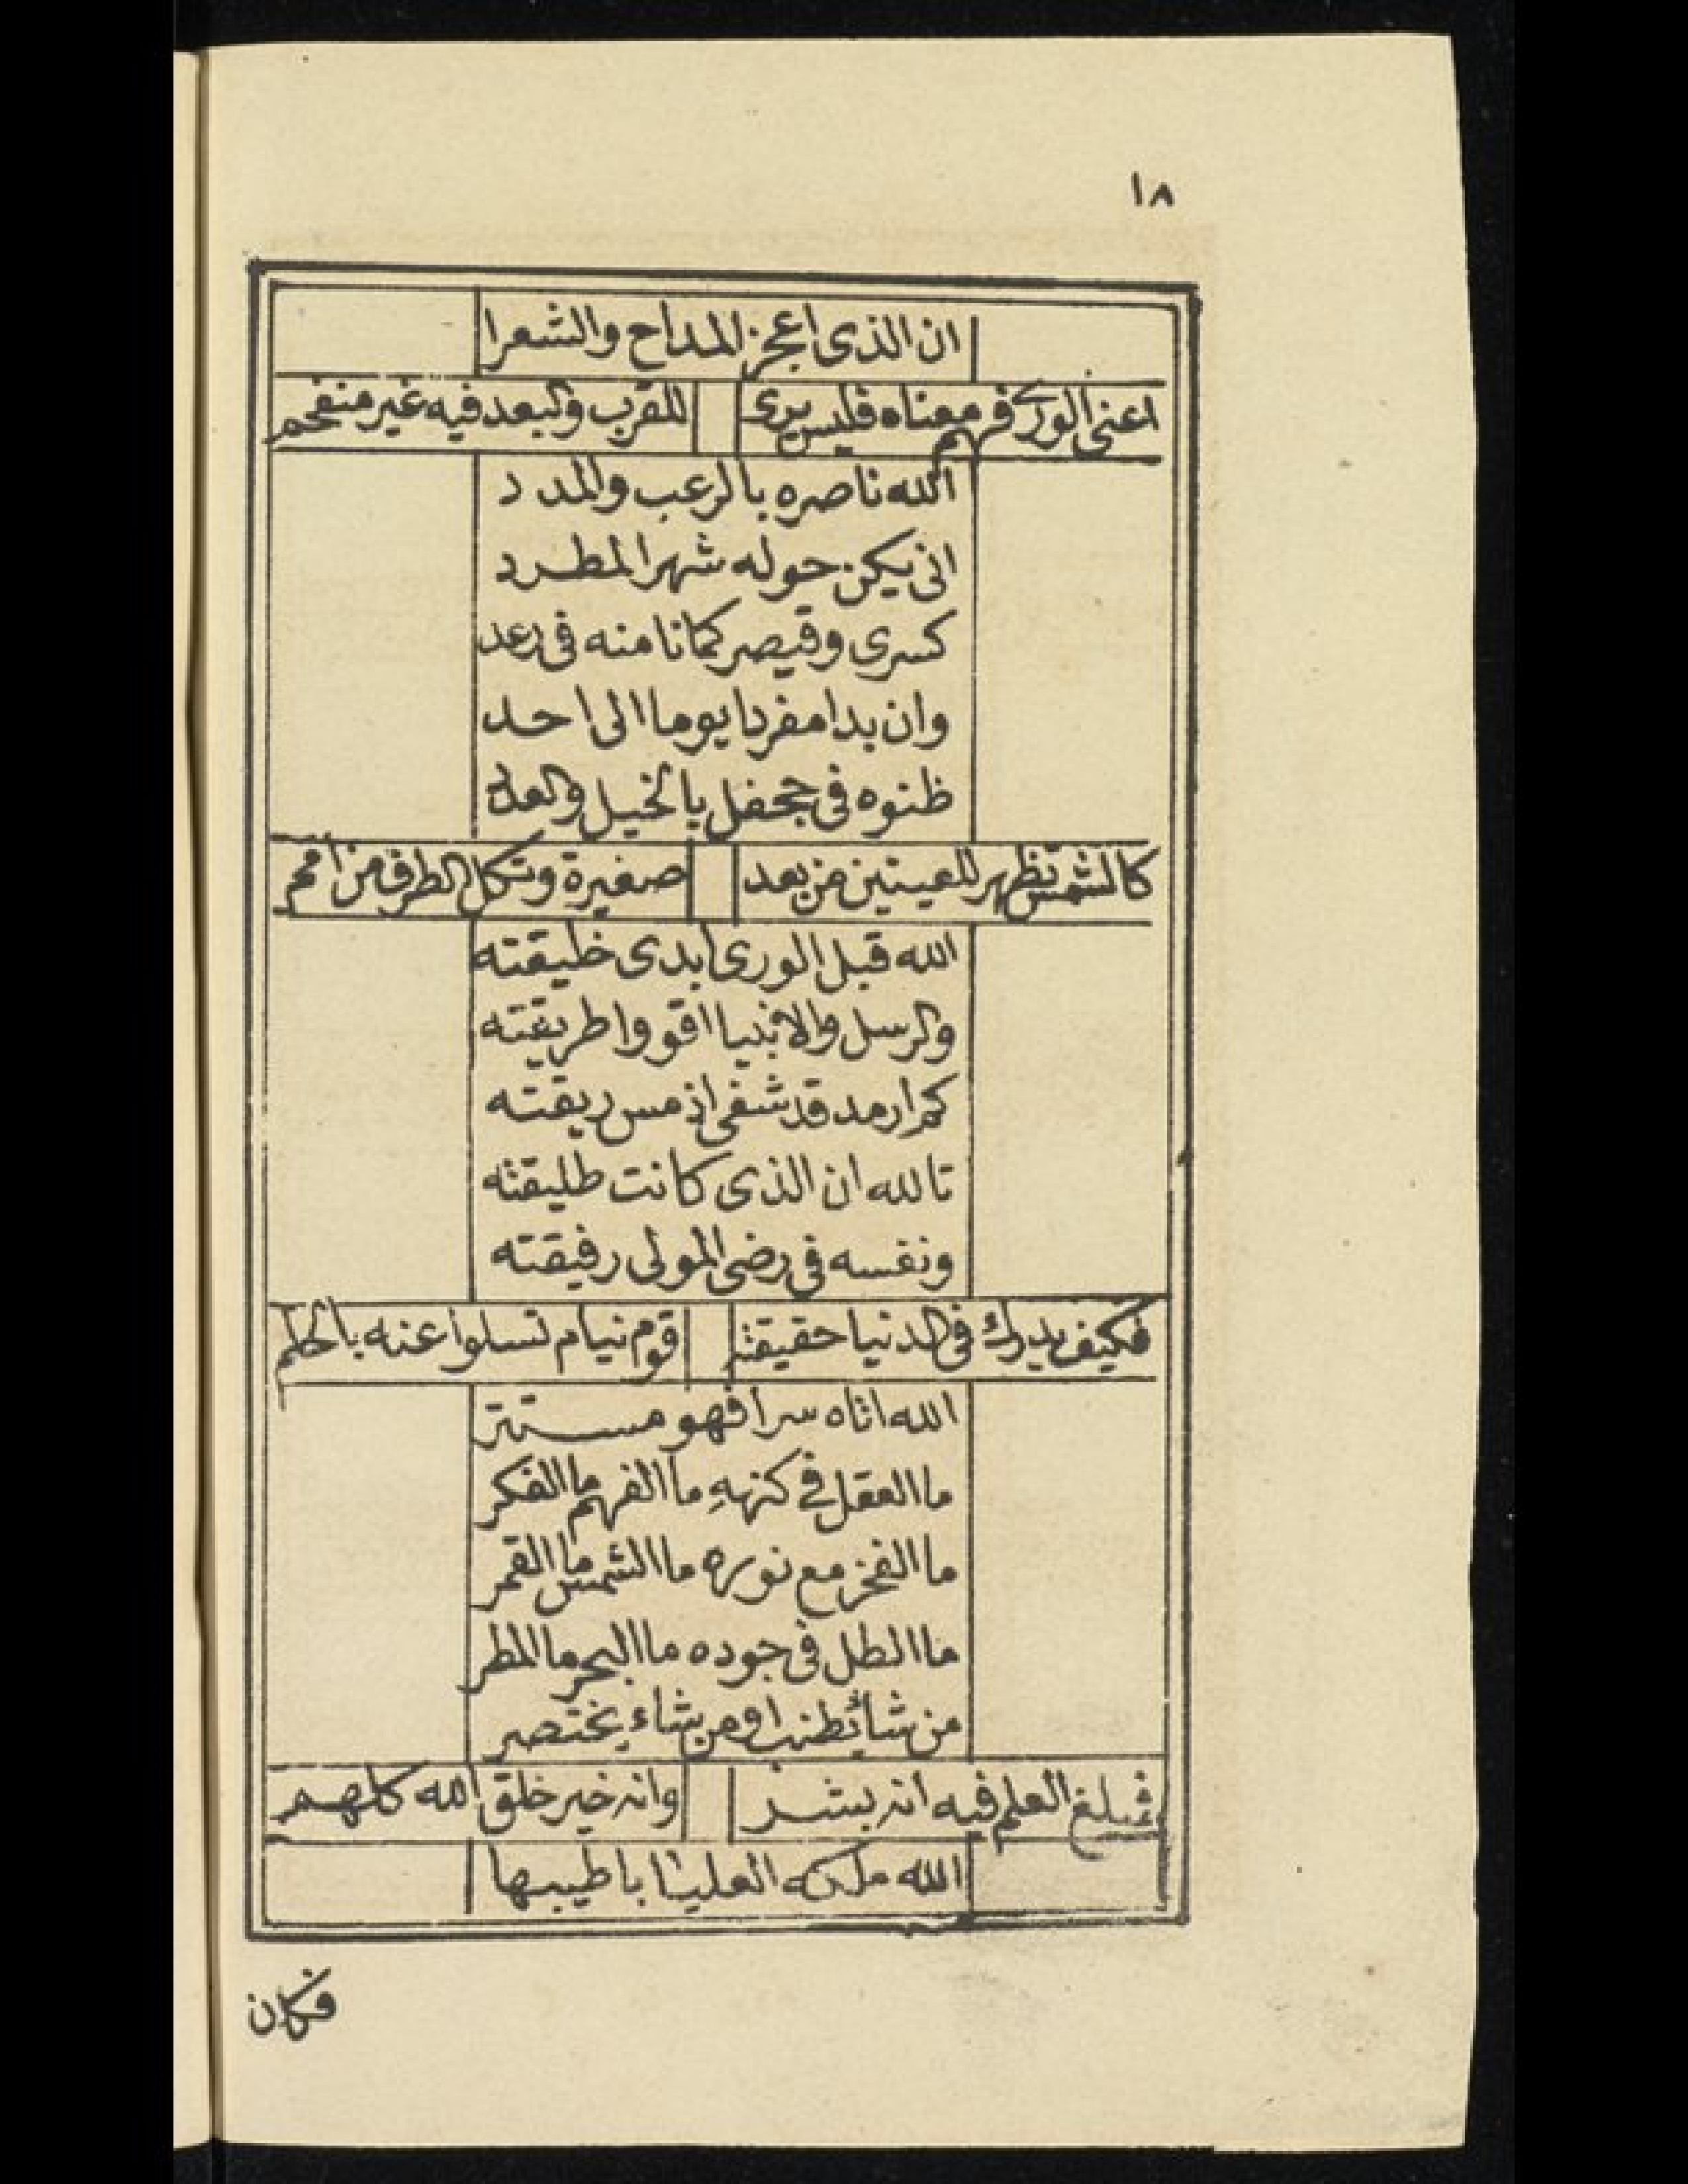 ١٨
ان الذى اعجز المداح والشعرا
اعنى الورى فهم معناه فليس يرى للقرب والبعد فيه غير منفحم
الله ناصره بالرعب والمدد
انى يكن حوله شهرا لمطرد
كسرى وقيصر كانا منه فى رعد
وان بدا مفردا يوما الى احد
ظنوه فى جحفل بالخيل والعدد
كالشمس تظهر للعينين من بعد صغيرة وتكل الطرف من امم
الله قبل الورى ابدى خليقته
والرسل والانبيا اقووا طريقته
كم ارمد قد شفى اذ مس ريقته
تالله ان الذى كانت طليقته
ونفسه فى رضى المولى رفيقته
فكيف يدرك فى الدنيا حقيقته قوم نيام تسلوا عنه بالحلم
الله اتاه سرا فهو مستتر
ما العقل فى كنهه ما الفهم ما الفكر
ما الفخر مع نوره ما الشمس ما القمر
ما الطل فى جوده ما البحر ما المطر
من شاء يطنب او من شاء يختصر
فمبلغ العلم فيه انه بشر وانه خير خلق الله كلهم
الله ملكه العليا باطيبها
فكان